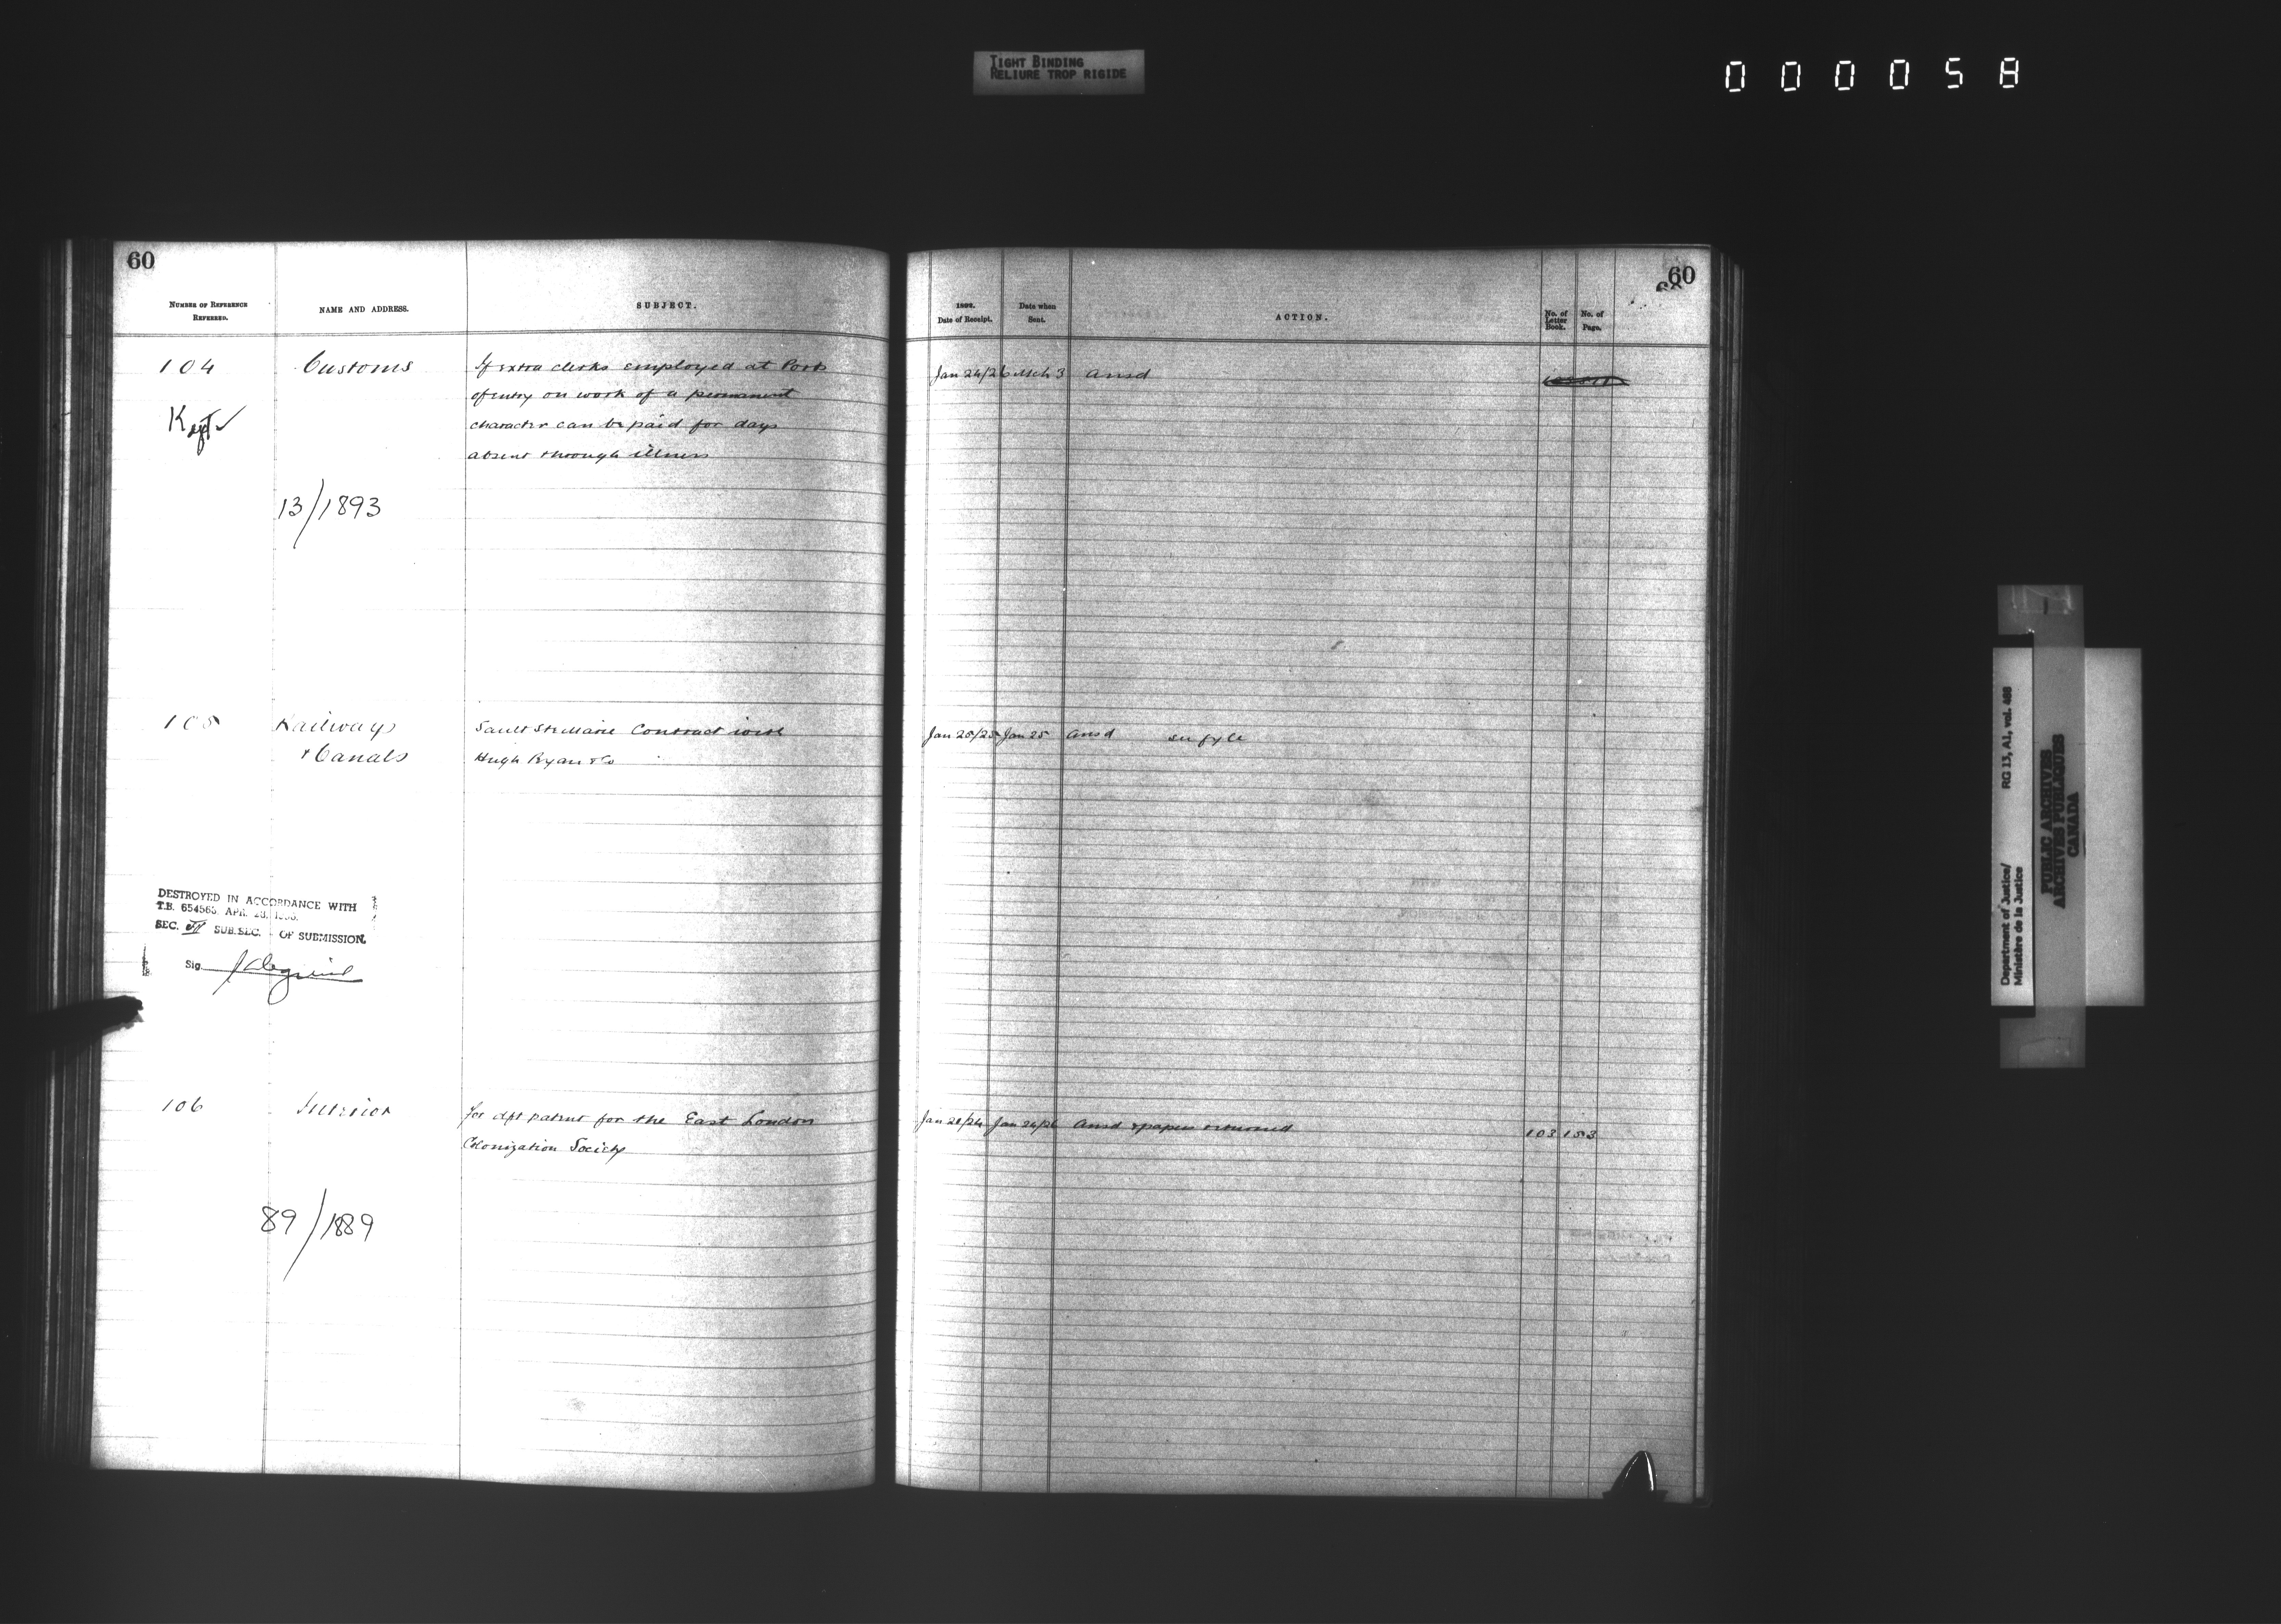 TIGHT BINDING
RELIURE TROP RIGIDE
000058
60
NUMBER OF REFERENCE
REFERRED.
NAME AND ADDRESS.
SUBJECT.
104 Customs If extra clerks employed at Ports
of entry on work of a permanent
character can be paid for days
absent through illness
Kept
13/1893
105 Railways Sault Ste Marie Contract with
& Canals Hugh Ryan & Co
DESTROYED IN ACCORDANCE WITH
T.B. 654563 APR. 28,
SEC. SUB.SEC. - OF SUBMISSION.
Sig.
106 Interior for dft patent for the East London
Colonization Society
89/1889
60
1892.
Date of Receipt.
Date when
Sent.
ACTION.
No. of
Letter
Book.
No. of
Page.
Jan 24/26 Mch 3 Ansd
Jan 25/25 Jan 25 Ansd see fyle
Jan 21/24 Jan 24/26 Ansd & papers returned 103 153
Department of Justice/ RG 13, A1, vol. 488
Ministère de la Justice
PUBLIC ARCHIVES
ARCHIVES PUBLIQUES
CANADA